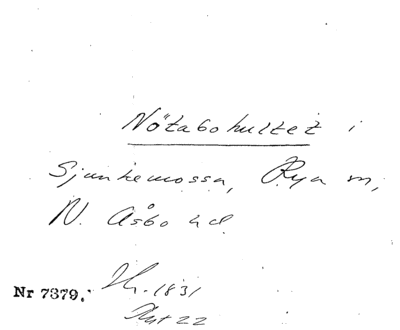 Nötabohultet i
Sjunkemossa, Rya m,
N. Åsbo hd
Nr 7379. Hr. 1831
22